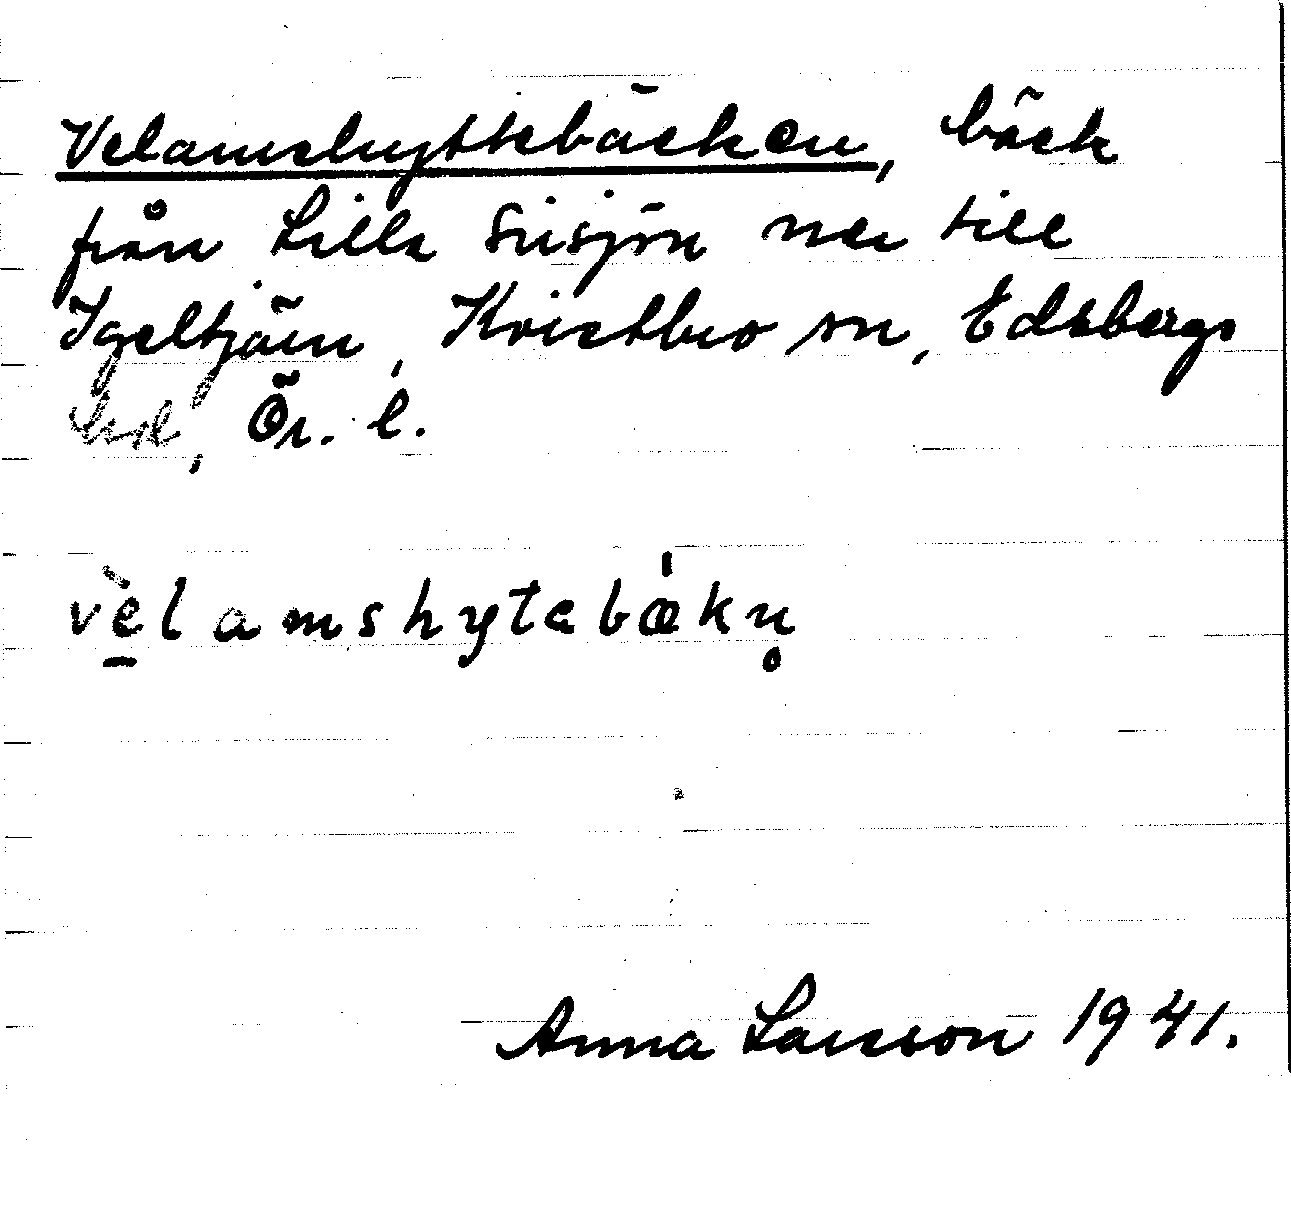 Velamshyttebäcken, bäck
från Lilla Sirsjön ner till
Igeltjärn, Kvistbro sn, Edsbergs
hd, Ör. l.
vèlamshytebǽkn̥
Anna Larsson 1941.